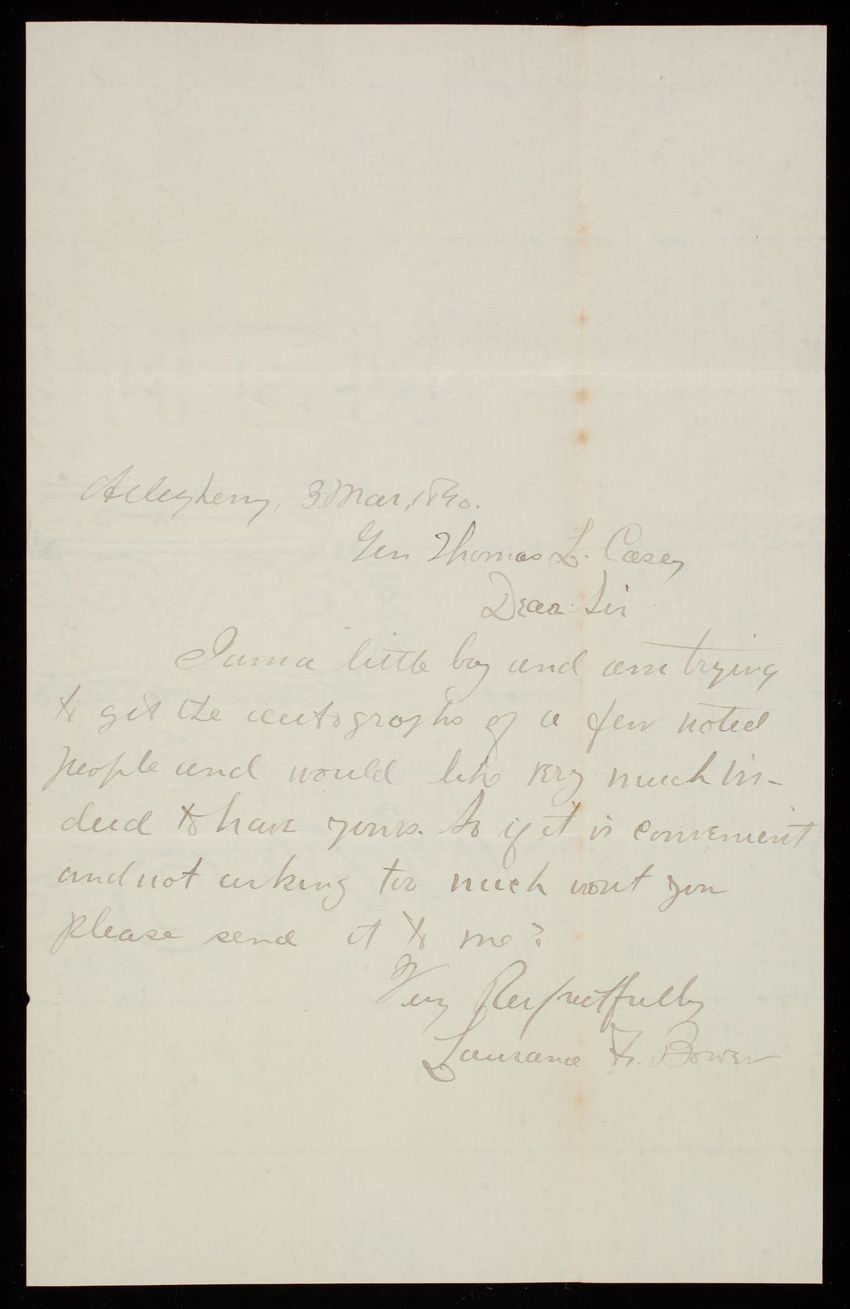 Allegheny, 3. Mar, 1890.
Gen Thomas L. Casey
Dear Sir
I am a little boy and am trying
to get the autographs of a few noted
people and would like very much in-
deed to have yours. So if it is convenient
and not asking too much wont you
please send it to me?
Very Respectfully
Laurance F. Bower